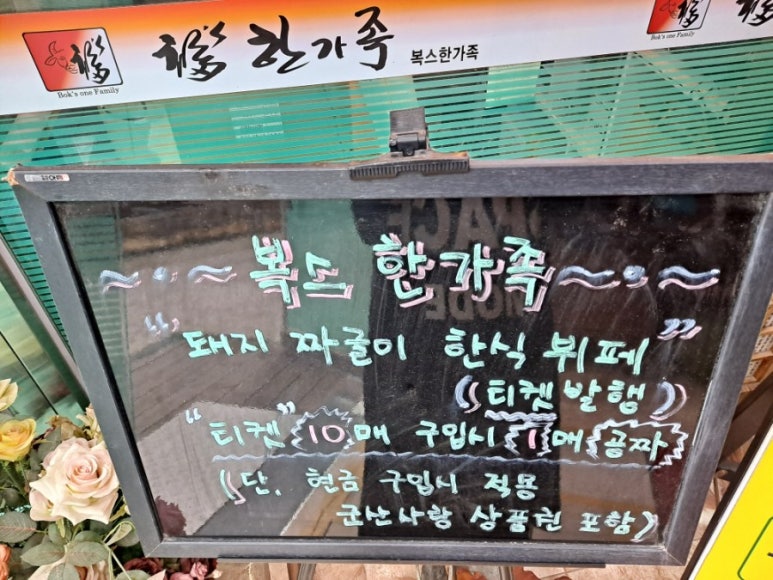 福 한가족 복스한가족
Bok's one Family
Bok's one Family
복스 한가족
"돼지 짜굴이 한식 뷔페"
(티켓발행)
"티켓" 10매 구입시 1매 공짜
(단, 현금 구입시 적용
군산사랑 상품권 포함)